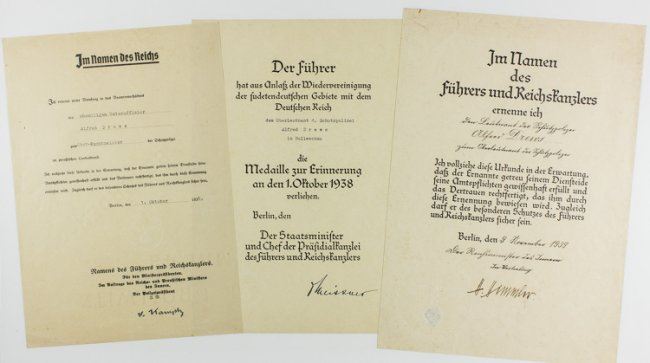 Im Namen des Reichs
ehemaligen Unteroffizier
Alfred Drews
Berlin, den 1. Oktober
Namens des Führers und Reichskanzlers.
Für den Ministerpräsidenten.
Im Auftrage des Reichs- und Preußischen Ministers
des Innern.
Der Polizeipräsident
v. Kamptz
Der Führer
hat aus Anlaß der Wiedervereinigung
der sudetendeutschen Gebiete mit dem
Deutschen Reich
dem Oberleutnant d. Schutzpolizei
Alfred Drews
in
die
Medaille zur Erinnerung
an den 1. Oktober 1938
verliehen.
Berlin, den
Der Staatsminister
und Chef der Präsidialkanzlei
des Führers und Reichskanzlers
Meissner
Im Namen
des
Führers und Reichskanzlers
ernenne ich
den Leutnant der Schutzpolizei
Alfred Drews
zum Oberleutnant der Schutzpolizei
Ich vollziehe diese Urkunde in der Erwartung,
daß der Ernannte getreu seinem Diensteide
seine Amtspflichten gewissenhaft erfüllt und
das Vertrauen rechtfertigt, das ihm durch
diese Ernennung bewiesen wird. Zugleich
darf er des besonderen Schutzes des Führers
und Reichskanzlers sicher sein.
Berlin, den 9. November 1937
Der Reichsminister des Innern
In Vertretung
H. Himmler